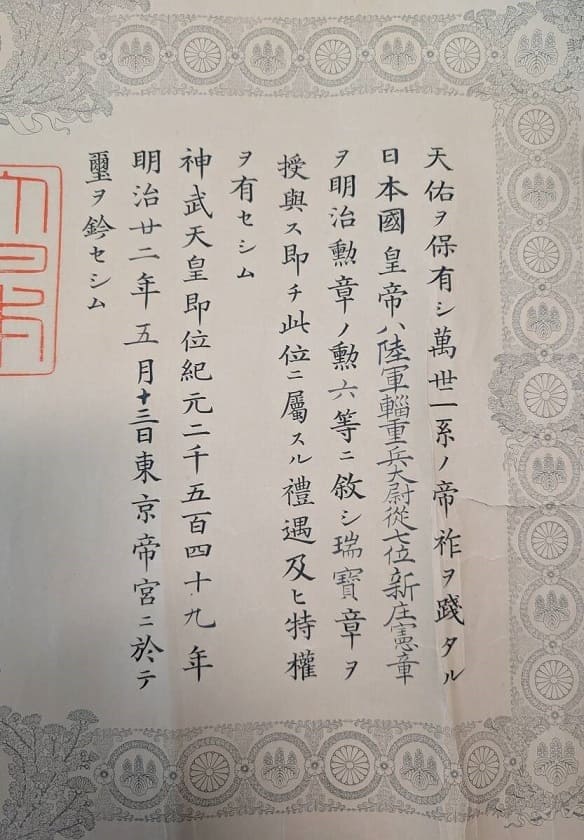 天佑ヲ保有シ萬世一系ノ帝祚ヲ踐タル
日本國皇帝ハ陸軍輜重兵大尉從七位新庄憲章
ヲ明治勲章ノ勲六等ニ敘シ瑞寶章ヲ
授與ス即チ此位ニ屬スル禮遇及ヒ特權
ヲ有セシム
神武天皇即位紀元二千五百四十九年
明治廿二年五月十三日東京帝宮ニ於テ
璽ヲ鈐セシム